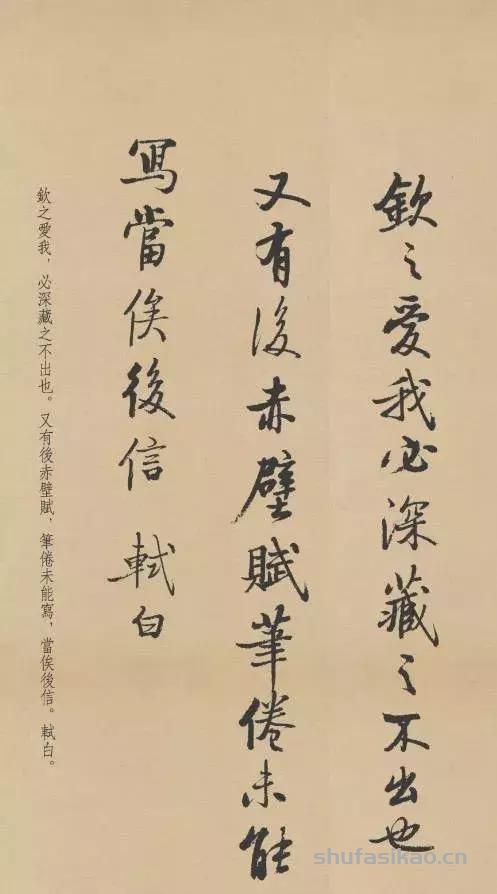 欽之愛我必深藏之不出也
又有後赤壁賦筆倦未能
寫當俟後信 軾白
欽之愛我，必深藏之不出也。又有後赤壁賦，筆倦未能寫，當俟後信。軾白。
shufasikao.cn